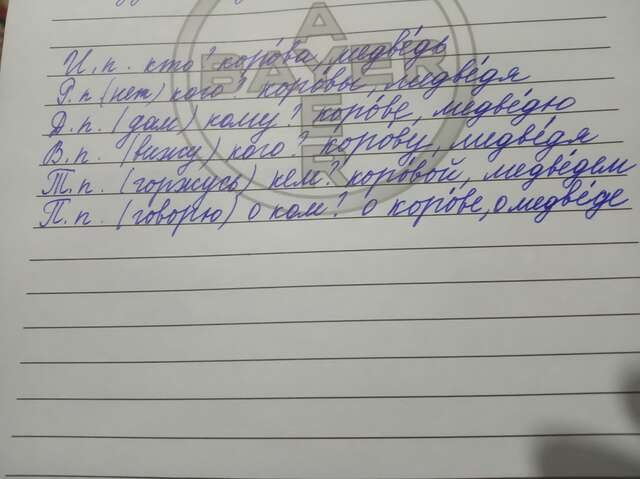 И.п. кто? коро́ва, медве́дь
Р.п. (нет) кого? коро́вы, медве́дя
Д.п. (дам) кому? коро́ве, медве́дю
В.п. (вижу) кого? коро́ву, медве́дя
Т.п. (горжусь) кем? коро́вой, медве́дем
П.п. (говорю) о ком? о коро́ве, о медве́де
BAYER
BAYER